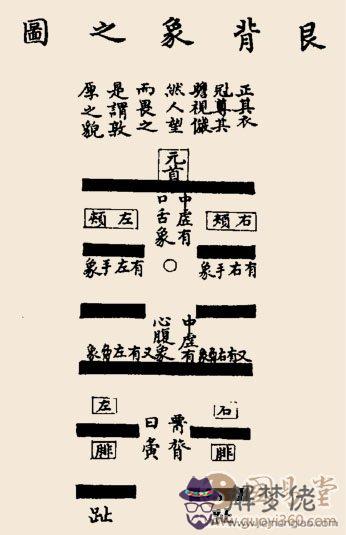 艮背象之圖
正其衣
冠尊其
瞻視儼
然人望
而畏之
是謂敦
原之貌
元首
中虛有
口舌象
右頰
左頰
有右手象
有左手象
中虛有
心腹象
又有右象
又有左象
右
左
曰夤
腓
腓
趾
趾
国易堂
www.guoyi360.com
解梦佬